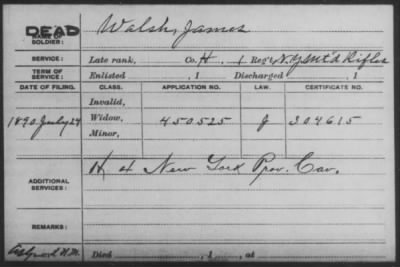 DEAD Walsh, James
NAME OF
SOLDIER:
SERVICE: Late rank, Co. H, 1 Reg't N.Y. Mt'd Rifles
TERM OF
SERVICE: Enlisted , 1 Discharged , 1
DATE OF FILING. CLASS. APPLICATION NO. LAW. CERTIFICATE NO.
Invalid,
1890 July 24 Widow, 450525 J 304615
Minor,
ADDITIONAL
SERVICES: H 4 New York Prov. Cav.
REMARKS:
Died , 1 , at